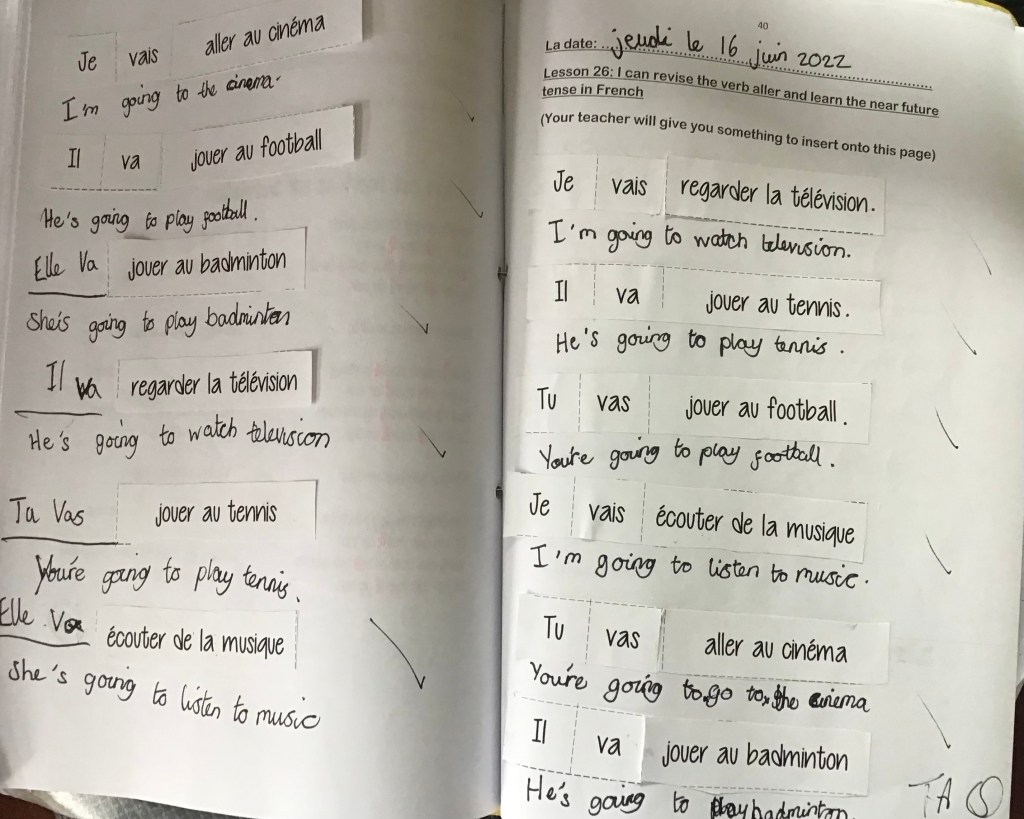 Je vais aller au cinéma
I'm going to the cinema.
Il va jouer au football
He's going to play football.
Elle Va jouer au badminton
She's going to play badminton
Il va regarder la télévision
He's going to watch television
Tu Vas jouer au tennis
You're going to play tennis.
Elle Va écouter de la musique
She's going to listen to music
40
La date: jeudi le 16 juin 2022
Lesson 26: I can revise the verb aller and learn the near future
tense in French
(Your teacher will give you something to insert onto this page)
Je vais regarder la télévision.
I'm going to watch television.
Il va jouer au tennis.
He's going to play tennis.
Tu vas jouer au football.
You're going to play football.
Je vais écouter de la musique
I'm going to listen to music.
Tu vas aller au cinéma
You're going to go to the cinema
Il va jouer au badminton
He's going to play badminton.
TA S